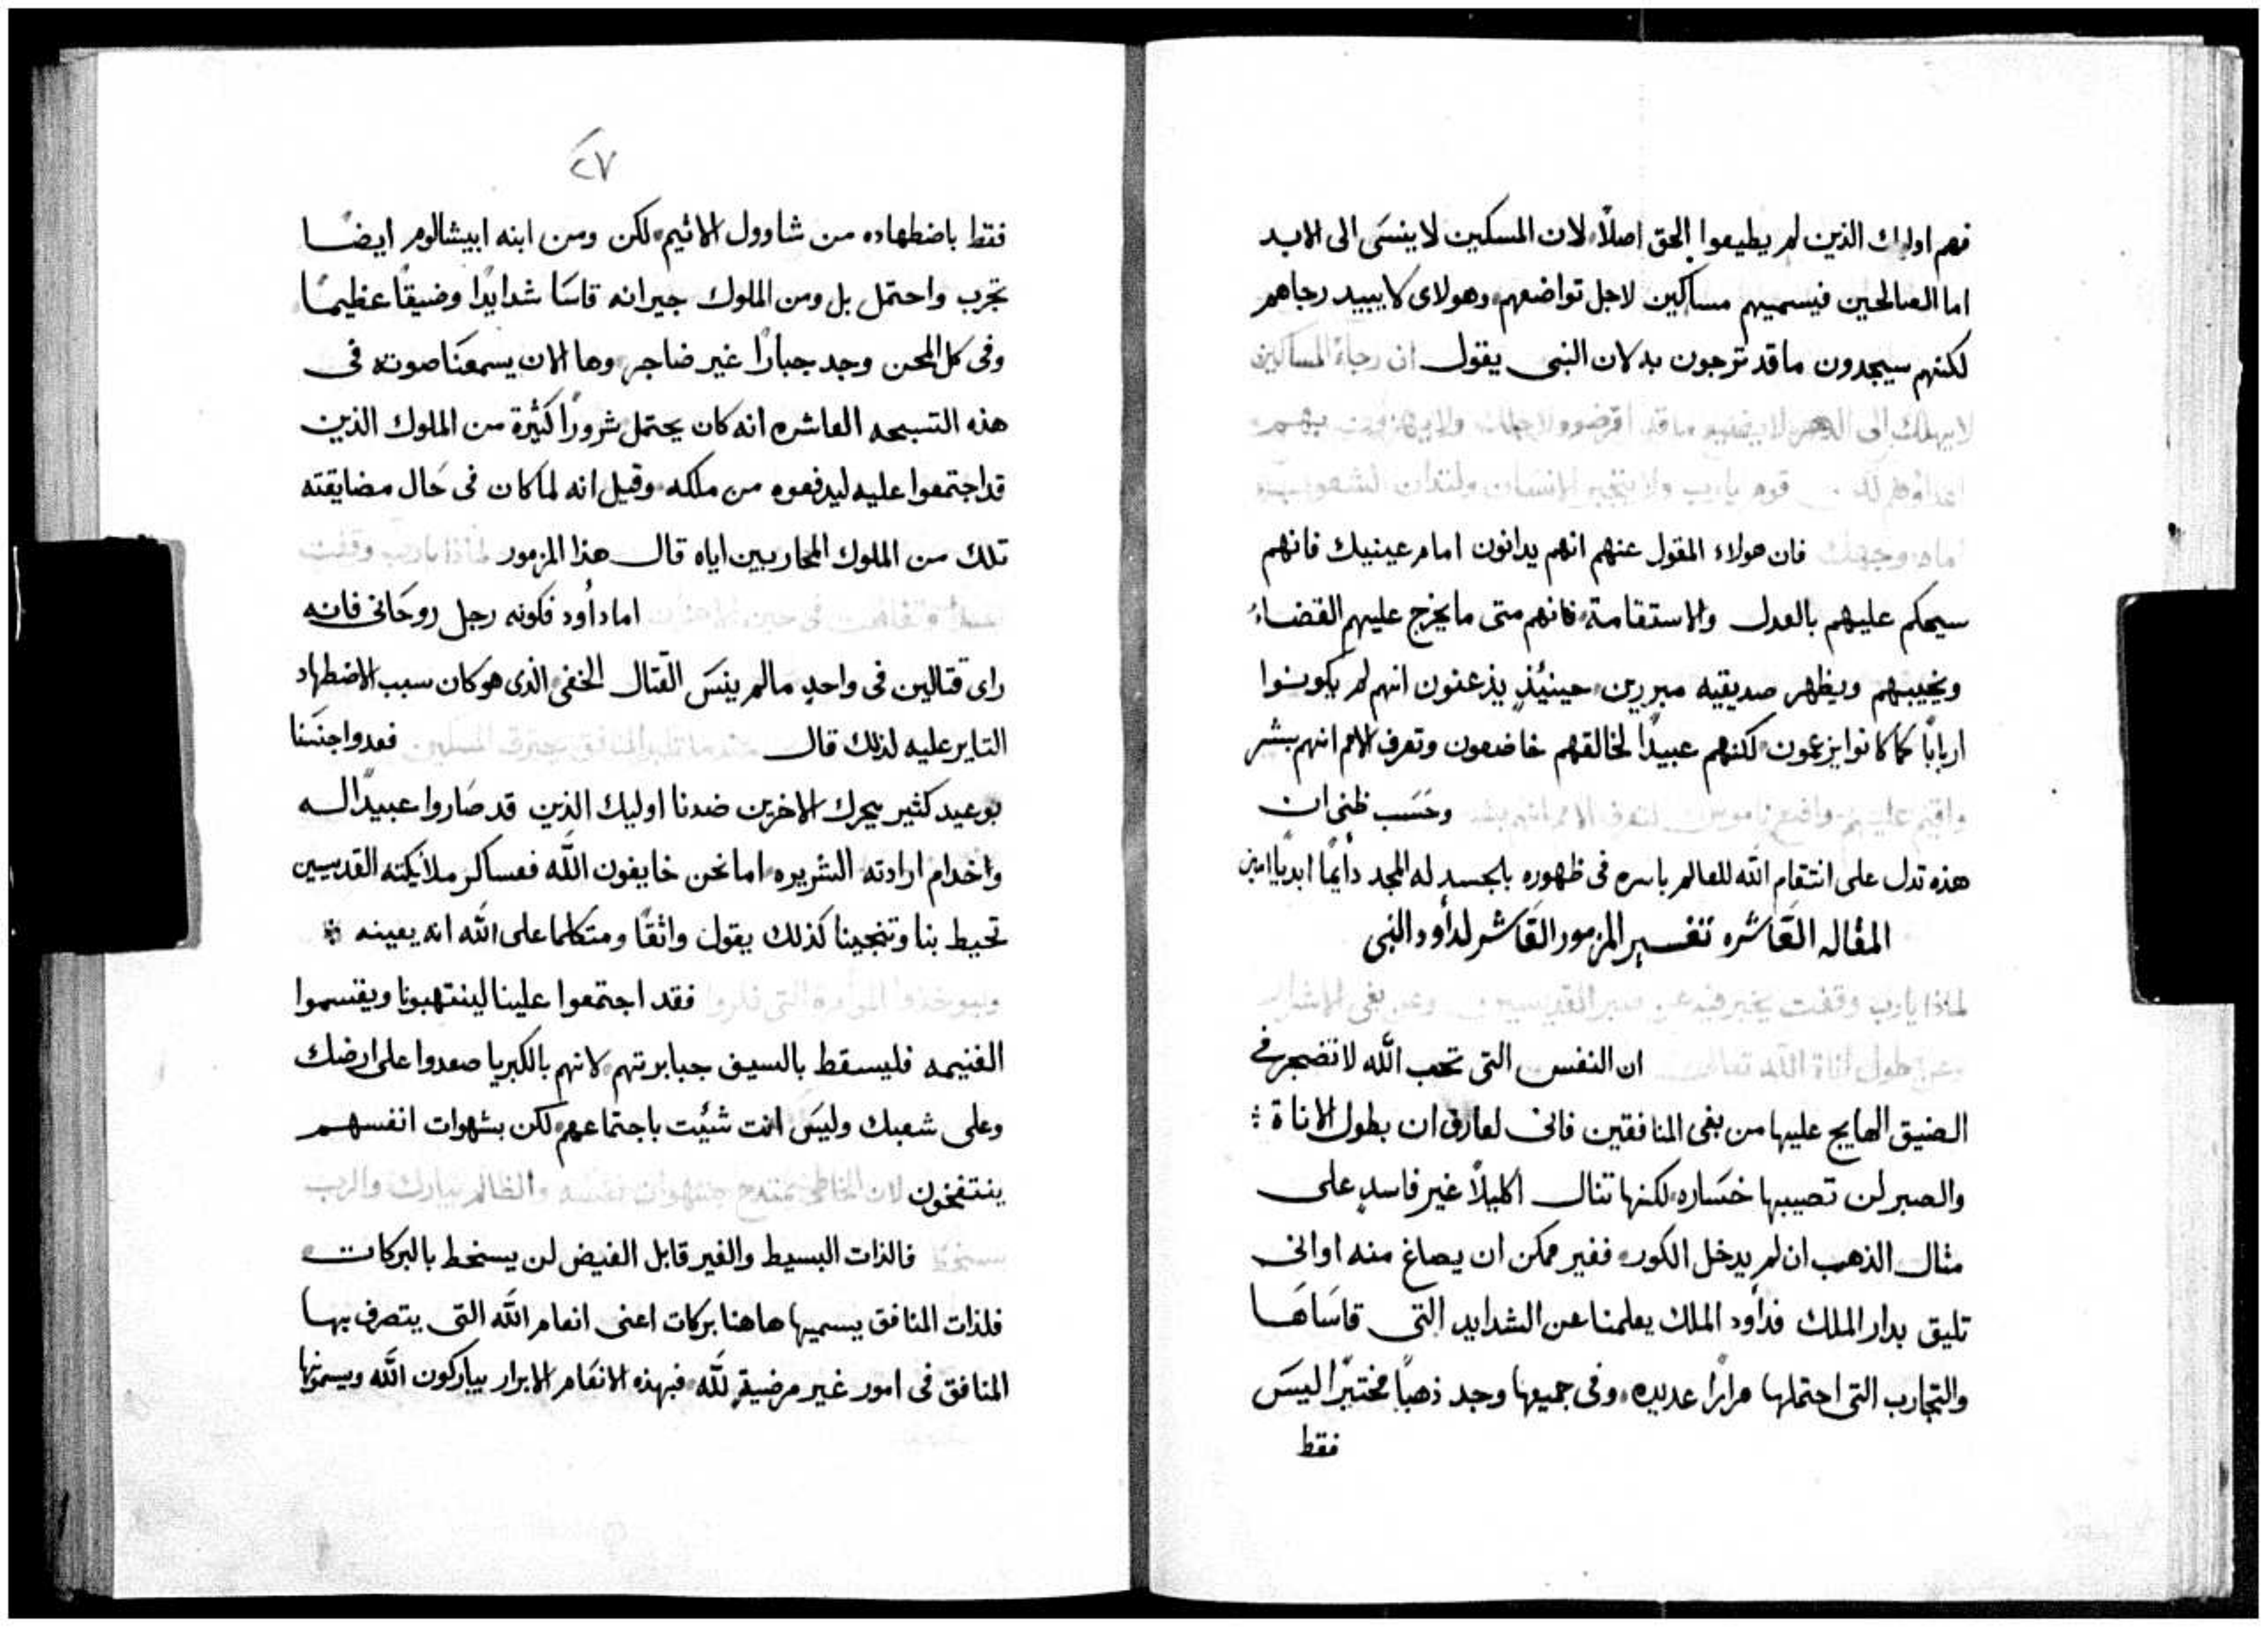 فهم اوليك الذين لم يطيعوا الحق اصلًا لان المسكين لا ينسَى الى الابد
اما الصالحين فيسميهم مساكين لاجل تواضعهم وهولاى لا يبيد رجاهم
لكنهم سيجدون ما قد ترجون به لان النبى يقول ان رجاة المساكين
لا يهلك الى الدهر
قوم يا رب ولا يتجبر الانسان ولتدان الشعوب
امام وجهك فان هولاء المقول عنهم انهم يدانون امام عينيك فانهم
سيحكم عليهم بالعدل والاستقامة فانهم متى ما يخرج عليهم القضاء
ويخيبهم ويظهر صديقيه مبررين حينيئذٍ يذعنون انهم لم يكونوا
اربابًا كما كانوا يزعمون لكنهم عبيدًا لخالقهم خاضعون وتعرف الامم انهم بشر
واقيم عليهم واضع ناموس لتعرف الامم انهم بشر وحَسَب ظنى ان
هذه تدل على انتقام الله للعالم باسره فى ظهوره بالجسد له المجد دأيمًا ابديًا امين
المقاله العَاشره تفسير المزمور العَاشر لدأود النبى
لماذا يا رب وقفت يخبر فيه عن صبر القديسين وعن بغى الاشرار
وعن طول اناة الله تعالى ان النفس التى تحب الله لا تضجر فى
الضيق الهايج عليها من بغى المنافقين فانى لعارف ان بطول الاناة
والصبر لن تصيبها خسَاره لكنها تنال اكليلًا غير فاسدٍ على
مثال الذهب ان لم يدخل الكور فغير ممكن ان يصاغ منه اوانى
تليق بدار الملك فدأود الملك يعلمنا عن الشدايد التى قاسَاهَا
والتجارب التى احتملها مرارًا عديده وفى جميعها وجد ذهبًا مختبرًا ليسَ
فقط
٢٧
فقط باضطهاده من شاوول الاثيم لكن ومن ابنه ابيشالوم ايضًا
تجرب واحتمل بل ومن الملوك جيرانه قاسَا شدايدًا وضيقًا عظيمًا
وفى كل المحن وجد جبارًا غير ضاجر وها الان يسمعَنا صوته فى
هذه التسبحه العاشره انه كان يحتمل شرورًا كثيرة من الملوك الذين
قد اجتمعوا عليه ليدفعوه من ملكه وقيل انه لما كان فى حَال مضايقته
تلك من الملوك المحاربين اياه قال هذا المزمور لماذا يا رب وقفت
اما دأود فكونه رجل روحَانى فانه
راى قتالين فى واحدٍ مالم ينسَ القتال الخفى الذى هو كان سبب الاضطهاد
الثاير عليه لذلك قال عندما تكبر المنافق يحترق المسكين فعدوا جنسَنا
بوعيد كثير يحرك الاخرين ضدنا اوليك الذين قد صَاروا عبيدًا له
واخدام ارادته الشريره اما نحن خايفون الله فعساكر ملايكته القديسين
تحيط بنا وتنجينا كذلك يقول واثقًا ومتكلما على الله انه يعينه
وليوخذوا بالموامرة التى فكروا فقد اجتمعوا علينا لينتهبونا ويقتسموا
الغنيمه فليسقط بالسيف جبابرتهم لانهم بالكبريا صعدوا على ارضك
وعلى شعبك وليسَ انت شئيت باجتماعهم لكن بشهوات انفسهم
ينتفخون لان الخاطى يمتدح بشهوات نفسه والظالم يبارك والرب
فالذات البسيط والغير قابل الغيض لن يسخط بالبركات
فلذات المنافق يسميها هاهنا بركات اعنى انعام الله التى يتصرف بها
المنافق فى امور غير مرضيةٍ لله فبهذه الانعَام الابرار يباركون الله ويسمونها